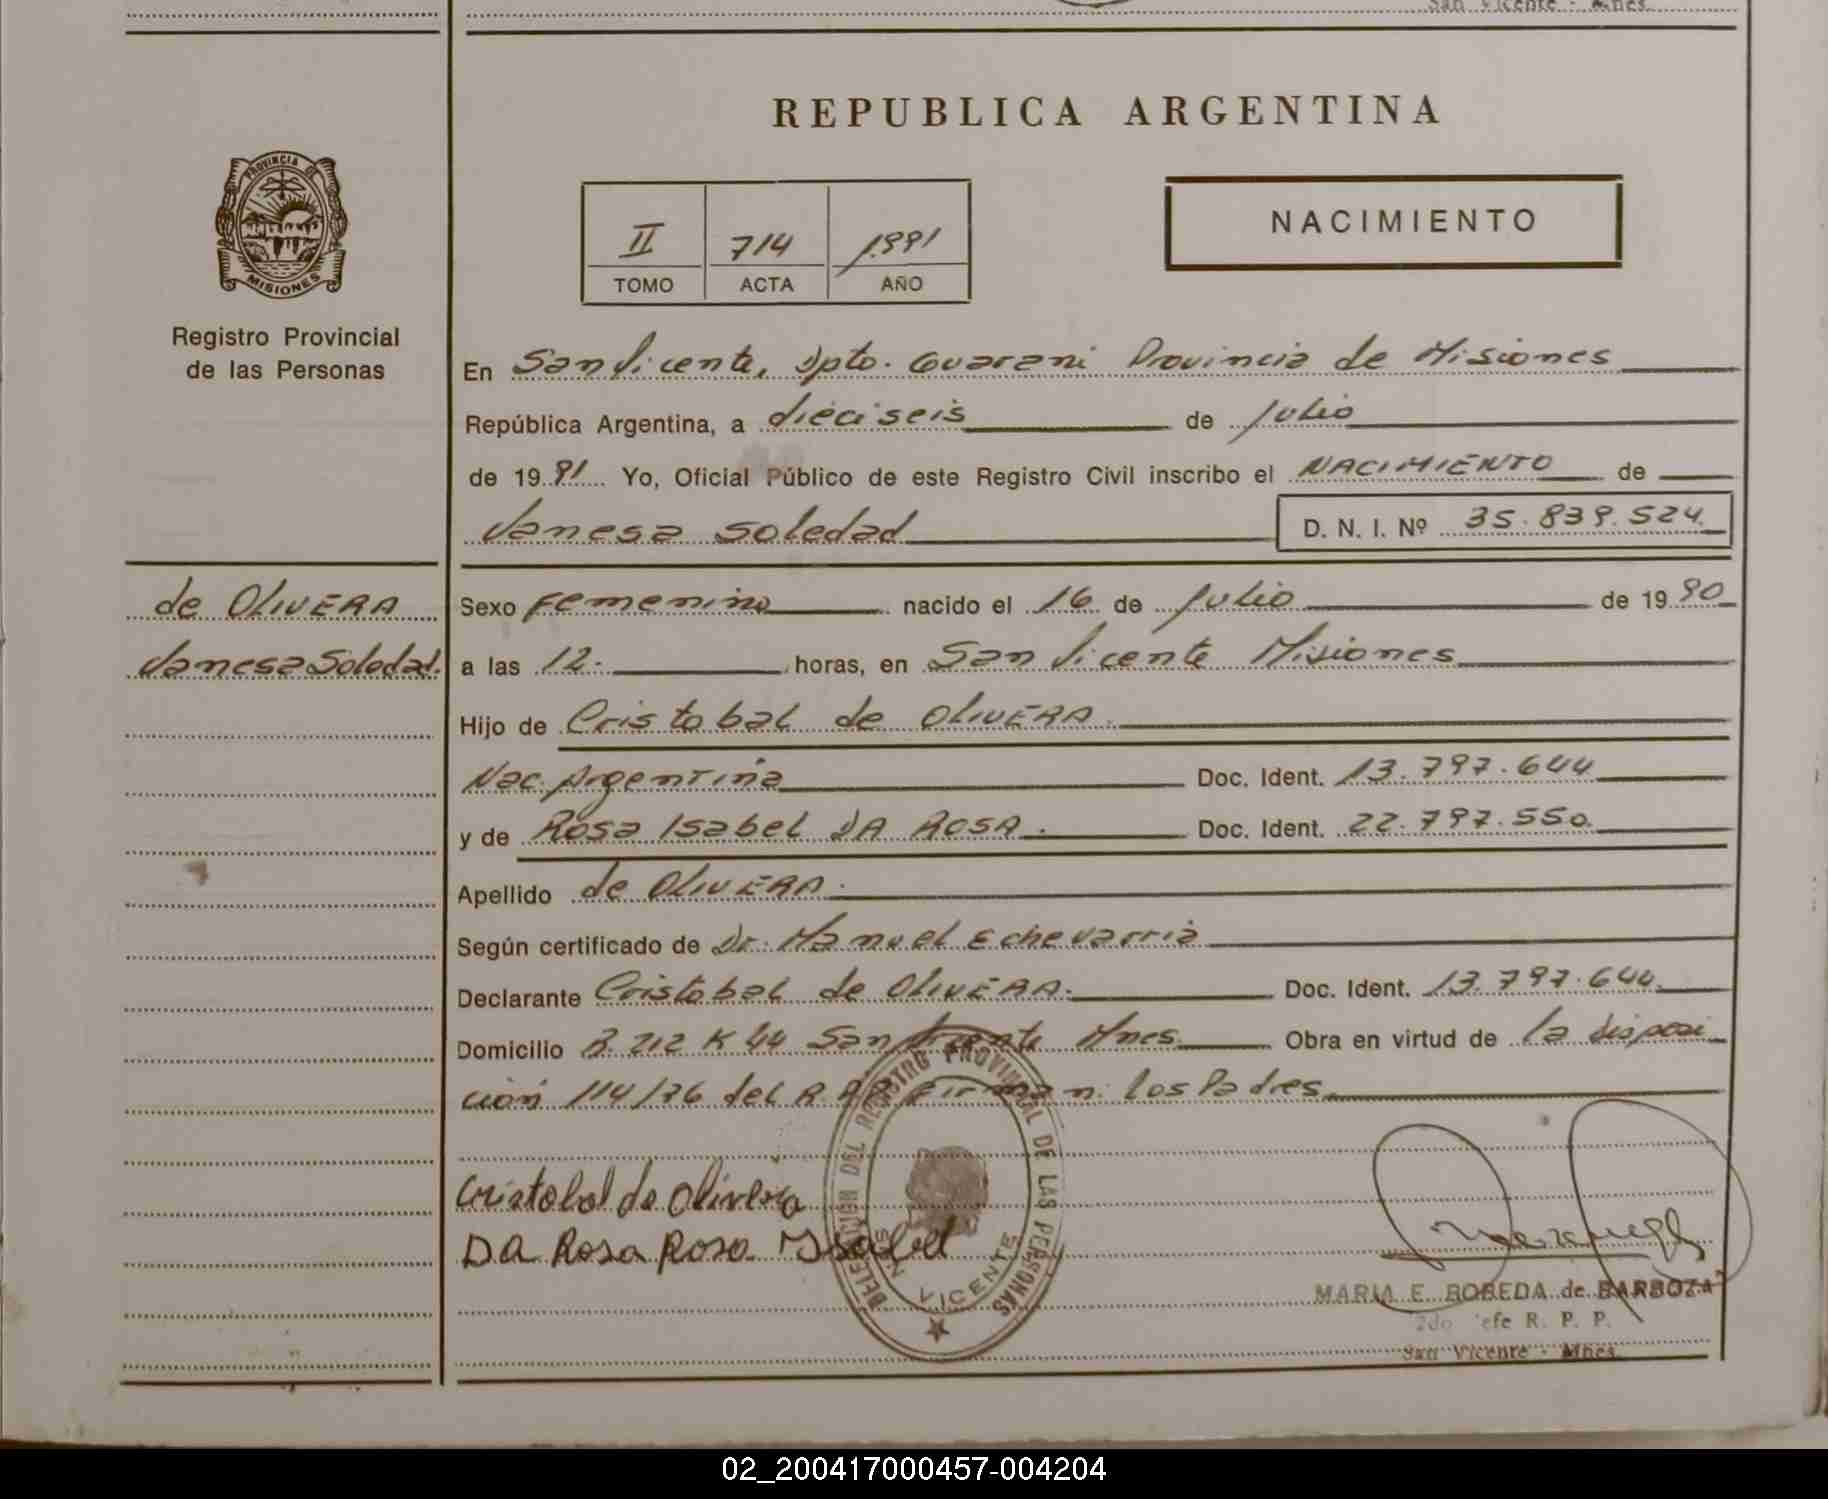 San Vicente - Mnes.
REPUBLICA ARGENTINA
PROVINCIA DE
MISIONES
Registro Provincial
de las Personas
II 714 1991
TOMO ACTA AÑO
NACIMIENTO
En San Vicente, Dpto. Guarani Provincia de Misiones
República Argentina, a dieciseis de Julio
de 19 91 Yo, Oficial Público de este Registro Civil inscribo el NACIMIENTO de
Vanesa Soledad D. N. I. Nº 35.839.524.
de OLIVERA
Vanesa Soledad.
Sexo Femenino nacido el 16 de Julio de 19 90
a las 12. horas, en San Vicente Misiones
Hijo de Cristobal de OLIVERA.
Nac. Argentina Doc. Ident. 13.797.644
y de Rosa Isabel DA ROSA. Doc. Ident. 22.797.550.
Apellido de OLIVERA.
Según certificado de Dr. Manuel Echevarria
Declarante Cristobal de OLIVERA. Doc. Ident. 13.797.644.
Domicilio R. 212 K 44 San Vicente Mnes. Obra en virtud de la disposi
ción 114/76 del R.P.P. Firman: los Padres.
Cristobal de Olivera
DA Rosa Rosa Isabel
DELEGACION DEL REGISTRO PROVINCIAL DE LAS PERSONAS
VICENTE
MARIA E. BOBEDA de BARBOZA
2do Jefe R. P. P.
San Vicente - Mnes.
02_200417000457-004204